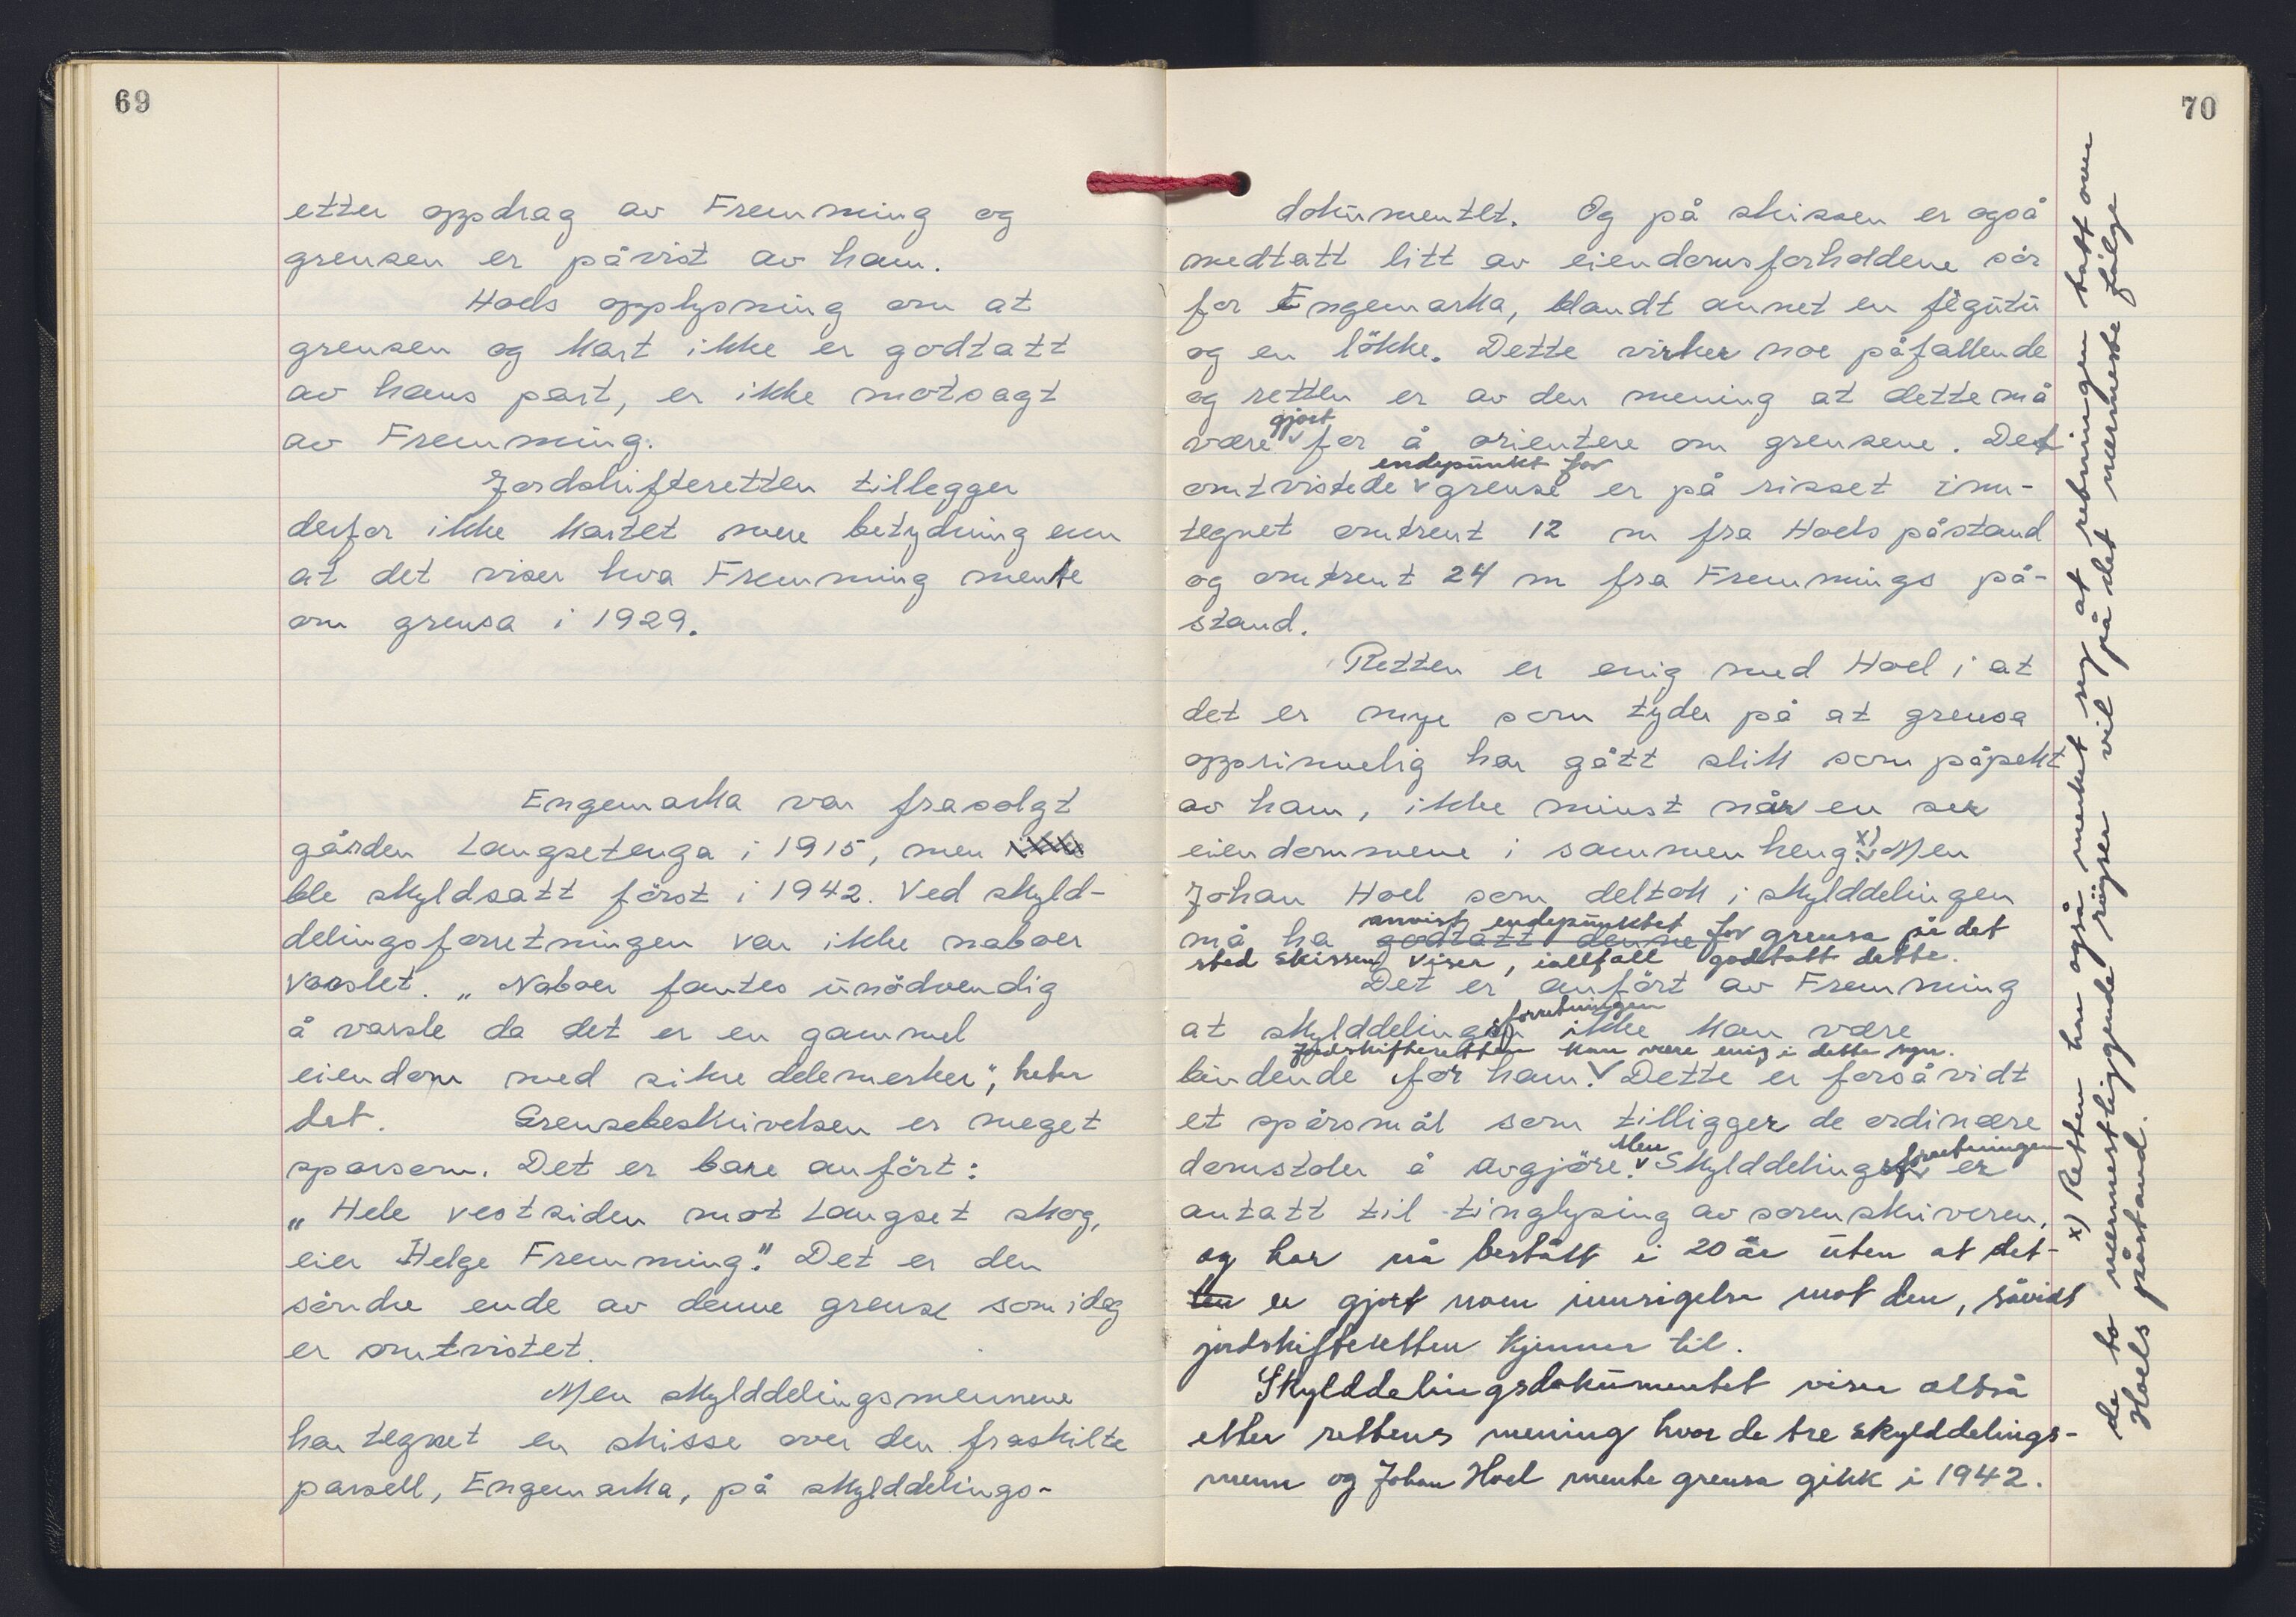 69
etter oppdrag av Fremming og
grensen er påvist av ham.
Hoels opplysning om at
grensen og kart ikke er godtatt
av hans part, er ikke motsagt
av Fremming.
Jordskifteretten tillegger
derfor ikke kartet mere betydning enn
at det viser hva Fremming mente
om grensa i 1929.
Engemarka var frasolgt
gården Langsetenga i 1915, men
ble skyldsatt först i 1942. Ved skyld-
delingsforretningen var ikke naboer
varslet. „Naboer fantes unödvendig
å varsle da det er en gammel
eiendom med sikre delemerker", heter
det. Grensebeskrivelsen er meget
sparsom. Det er bare anfört:
„Hele vestsiden mot Langset skog,
eier Helge Fremming." Det er den
söndre ende av denne grense som idag
er omtvistet.
Men skylddelingsmennene
har tegnet en skisse over den fraskilte
parsell, Engemarka, på skylddelings-
70
dokumentet. Og på skissen er også
medtatt litt av eiendomsforholdene sör
for Engemarka, blandt annet en fegutu
og en lökke. Dette virker noe påfallende
og retten er av den mening at dette må
gjort
være for å orientere om grensene. Det
endepunkt for
omtvistede grense er på risset inn-
tegnet omtrent 12 m fra Hoels påstand
og omtrent 24 m fra Fremmings på-
stand.
Retten er enig med Hoel i at
det er mye som tyder på at grensa
opprinnelig har gått slik som påpekt
av ham, ikke minst når en ser
eiendommene i sammenheng. x) Men
Johan Hoel som deltok i skylddelingen
anvist endepunktet for
må ha godtatt denne grensa på det
sted skissen viser, iallfall godtatt dette.
Det er anfört av Fremming
forretningen
at skylddelings ikke kan være
Jordskifteretten kan være enig i dette syn.
bindende for ham. Dette er forsåvidt
et spörsmål som tilligger de ordinære
Men forretningen
domstoler å avgjöre. Skylddelings er
antatt til tinglysing av sorenskriveren,
og har nå bestått i 20 år uten at det
er gjort noen innsigelse mot den, såvidt
jordskifteretten kjenner til.
Skylddelingsdokumentet viser altså
etter rettens mening hvor de tre skylddelings-
menn og Johan Hoel mente grensa gikk i 1942.
x) Retten har også merket seg at retningen tatt over
de to nærmestliggende röyser vil på det nærmeste fölge
Hoels påstand.